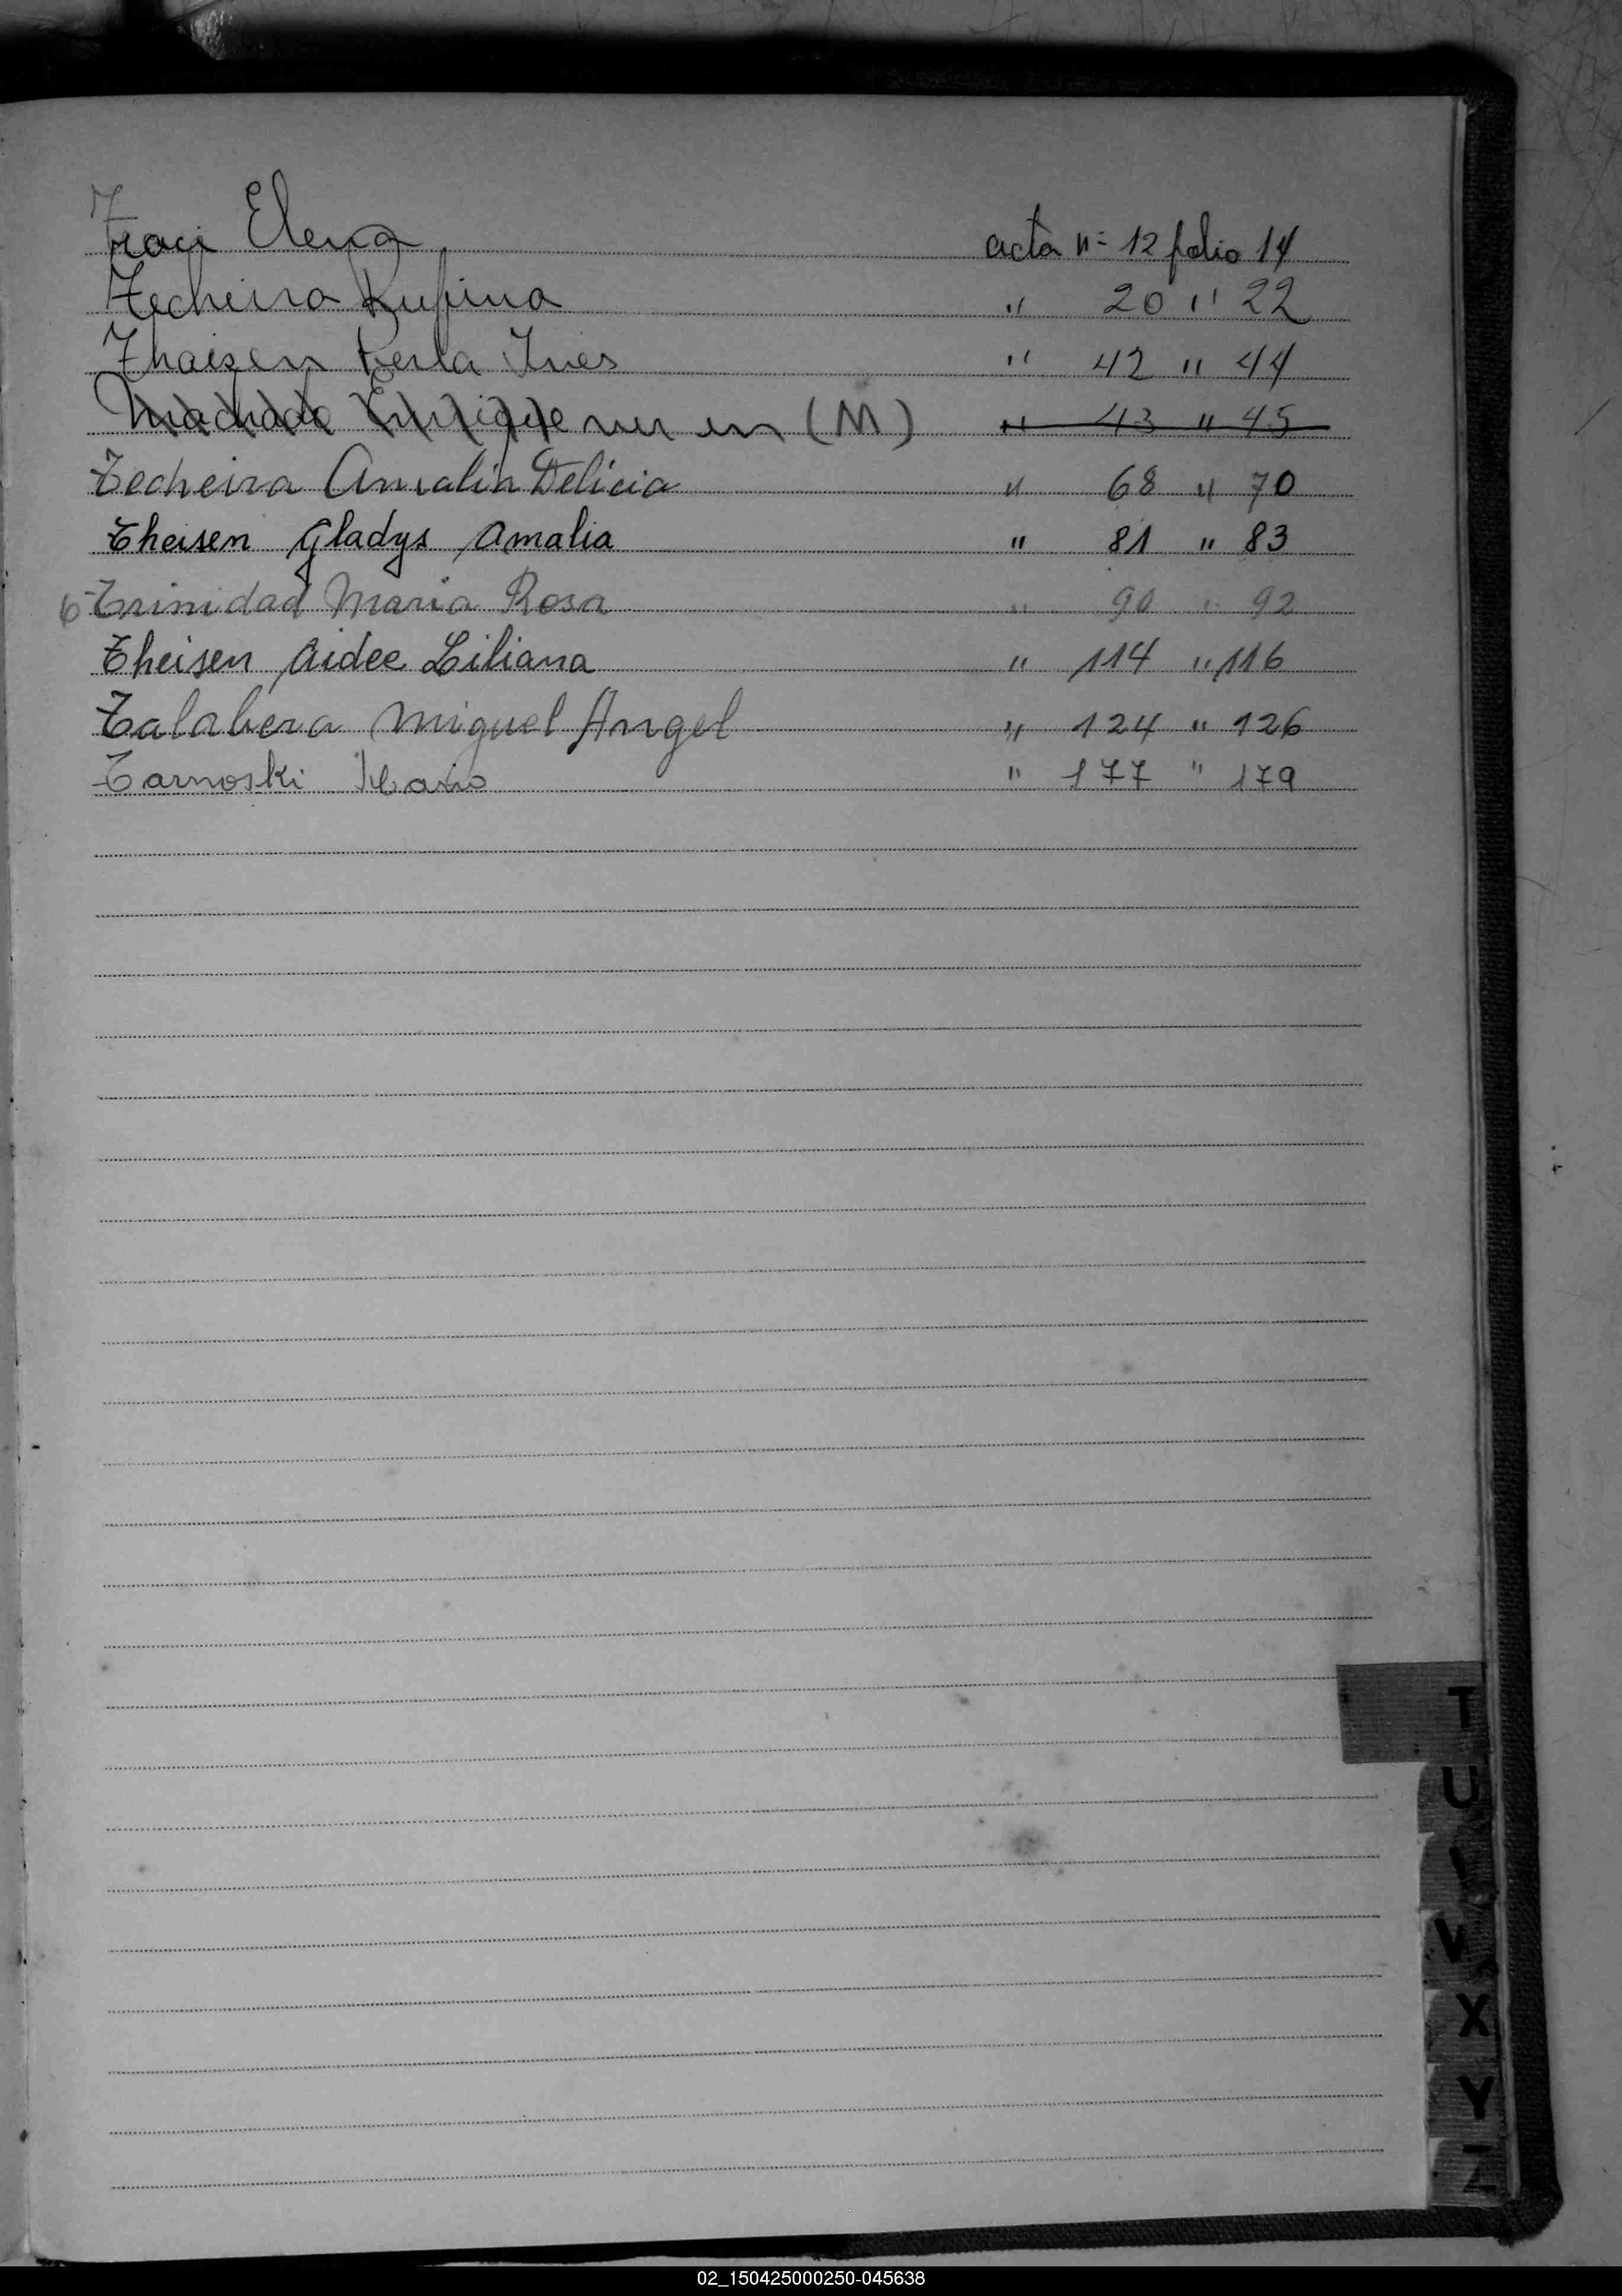 Traci Elena acta nº 12 folio 14
Techeira Rufina " 20 " 22
Thaisen Perla Ines " 42 " 44
Machado Enrique ver en (M) " 43 " 45
Techeira Amalia Delicia " 68 " 70
Theisen Gladys Amalia " 81 " 83
Trinidad Maria Rosa " 90 " 92
Theisen Aidee Liliana " 114 " 116
Talabera Miguel Angel " 124 " 126
Tarnoski " 177 " 179
T
U
V
X
Y
Z
02_150425000250-045638